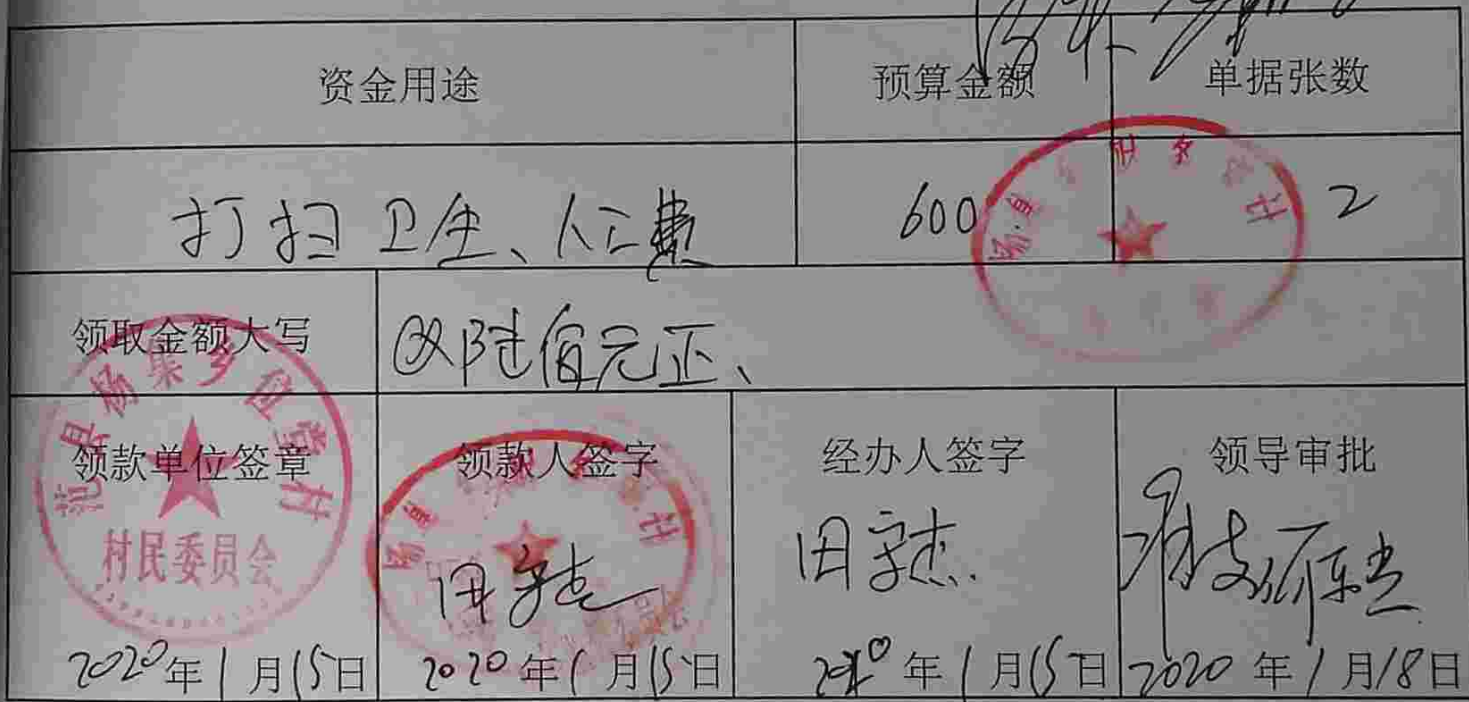 资金用途 预算金额 单据张数
打扫卫生、人工费 600 2
领取金额大写 ⊗陆佰元正、
领款单位签章 领款人签字 经办人签字 领导审批
范县杨集乡位堂村
村民委员会
田宇杰 田宇杰.
2020年1月15日 2020年1月15日 2020年1月15日 2020年1月18日